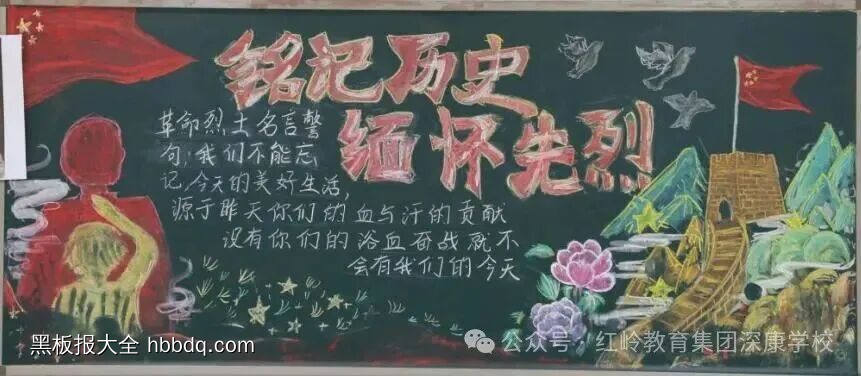 铭记历史
缅怀先烈
革命烈士名言警
句:我们不能忘
记,今天的美好生活,
源于昨天你们的血与汗的贡献
没有你们的浴血奋战就不
会有我们的今天
黑板报大全 hbbdq.com
公众号·红岭教育集团深康学校